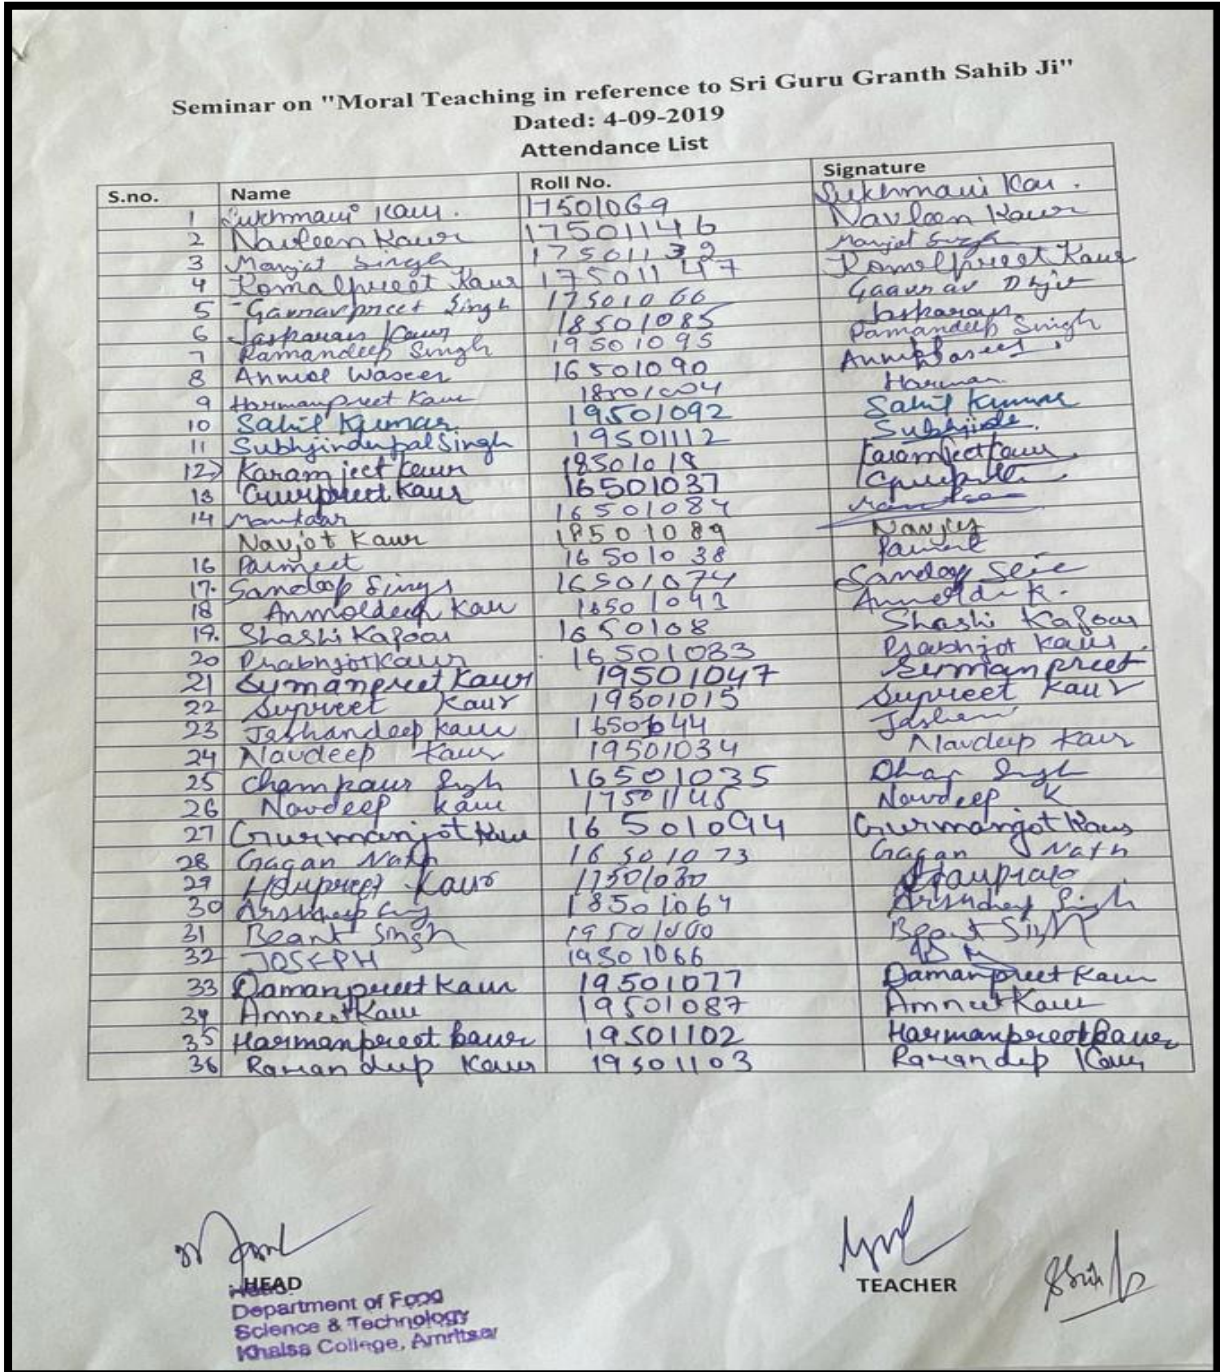 Seminar on "Moral Teaching in reference to Sri Guru Granth Sahib Ji"
Dated: 4-09-2019
Attendance List
S.no. Name Roll No. Signature
1 Sukhmani Kaur. 17501069 Sukhmani Kau.
2 Navleen Kaur 17501146 Navleen Kaur
3 Manjot Singh 17501132 Manjot Singh
4 Komalpreet Kaur 17501147 Komalpreet Kaur
5 Gauravpreet Singh 17501066 Gaurav
6 Jaskaran Kaur 18501085 Jaskaran
7 Ramandeep Singh 19501095 Ramandeep Singh
8 Anmol Waseer 16501090
9 Harmanpreet Kaur 18501004 Harman
10 Sahil Kumar. 19501092 Sahil Kumar
11 SubhjinderpalSingh 19501112
12) Karamjeet Kaur 18501018 Karamjeet Kaur
13 Gurpreet Kaur 16501037
14 16501084
Navjot Kaur 18501089
16 Parneet 16501038
17. Sandeep Singh 16501074
18 Anmoldeep Kaur 16501043
19. Shashi Kapoor 1650108 Shashi Kapoor
20 Prabhjot Kaur 16501083 Prabhjot Kaur.
21 Symanpreet Kaur 19501047 Symanpreet
22 Supreet Kaur 19501015 Supreet Kaur
23 Jashandeep Kaur Jashan
24 Navdeep Kaur 19501034 Navdeep Kaur
25 Singh 16501035 Singh
26 Navdeep Kaur 17501145 Navdeep K
27 Gurmanjot Kaur 16501094 Gurmanjot Kaur
28 Gagan Nath 16501073 Gagan Nath
29 Kaur 17501030
30 Arshdeep 18501064 Arshdeep Singh
31 Beant Singh Beant Singh
32 JOSEPH 19501066
33 Damanpreet Kaur 19501077 Damanpreet Kaur
34 Amneet Kaur 19501087 Amneet Kaur
35 Harmanpreet Kaur 19501102 Harmanpreet Kaur
36 Ramandeep Kaur 19501103 Ramandeep Kaur
HEAD TEACHER
Head
Department of Food
Science & Technology
Khalsa College, Amritsar